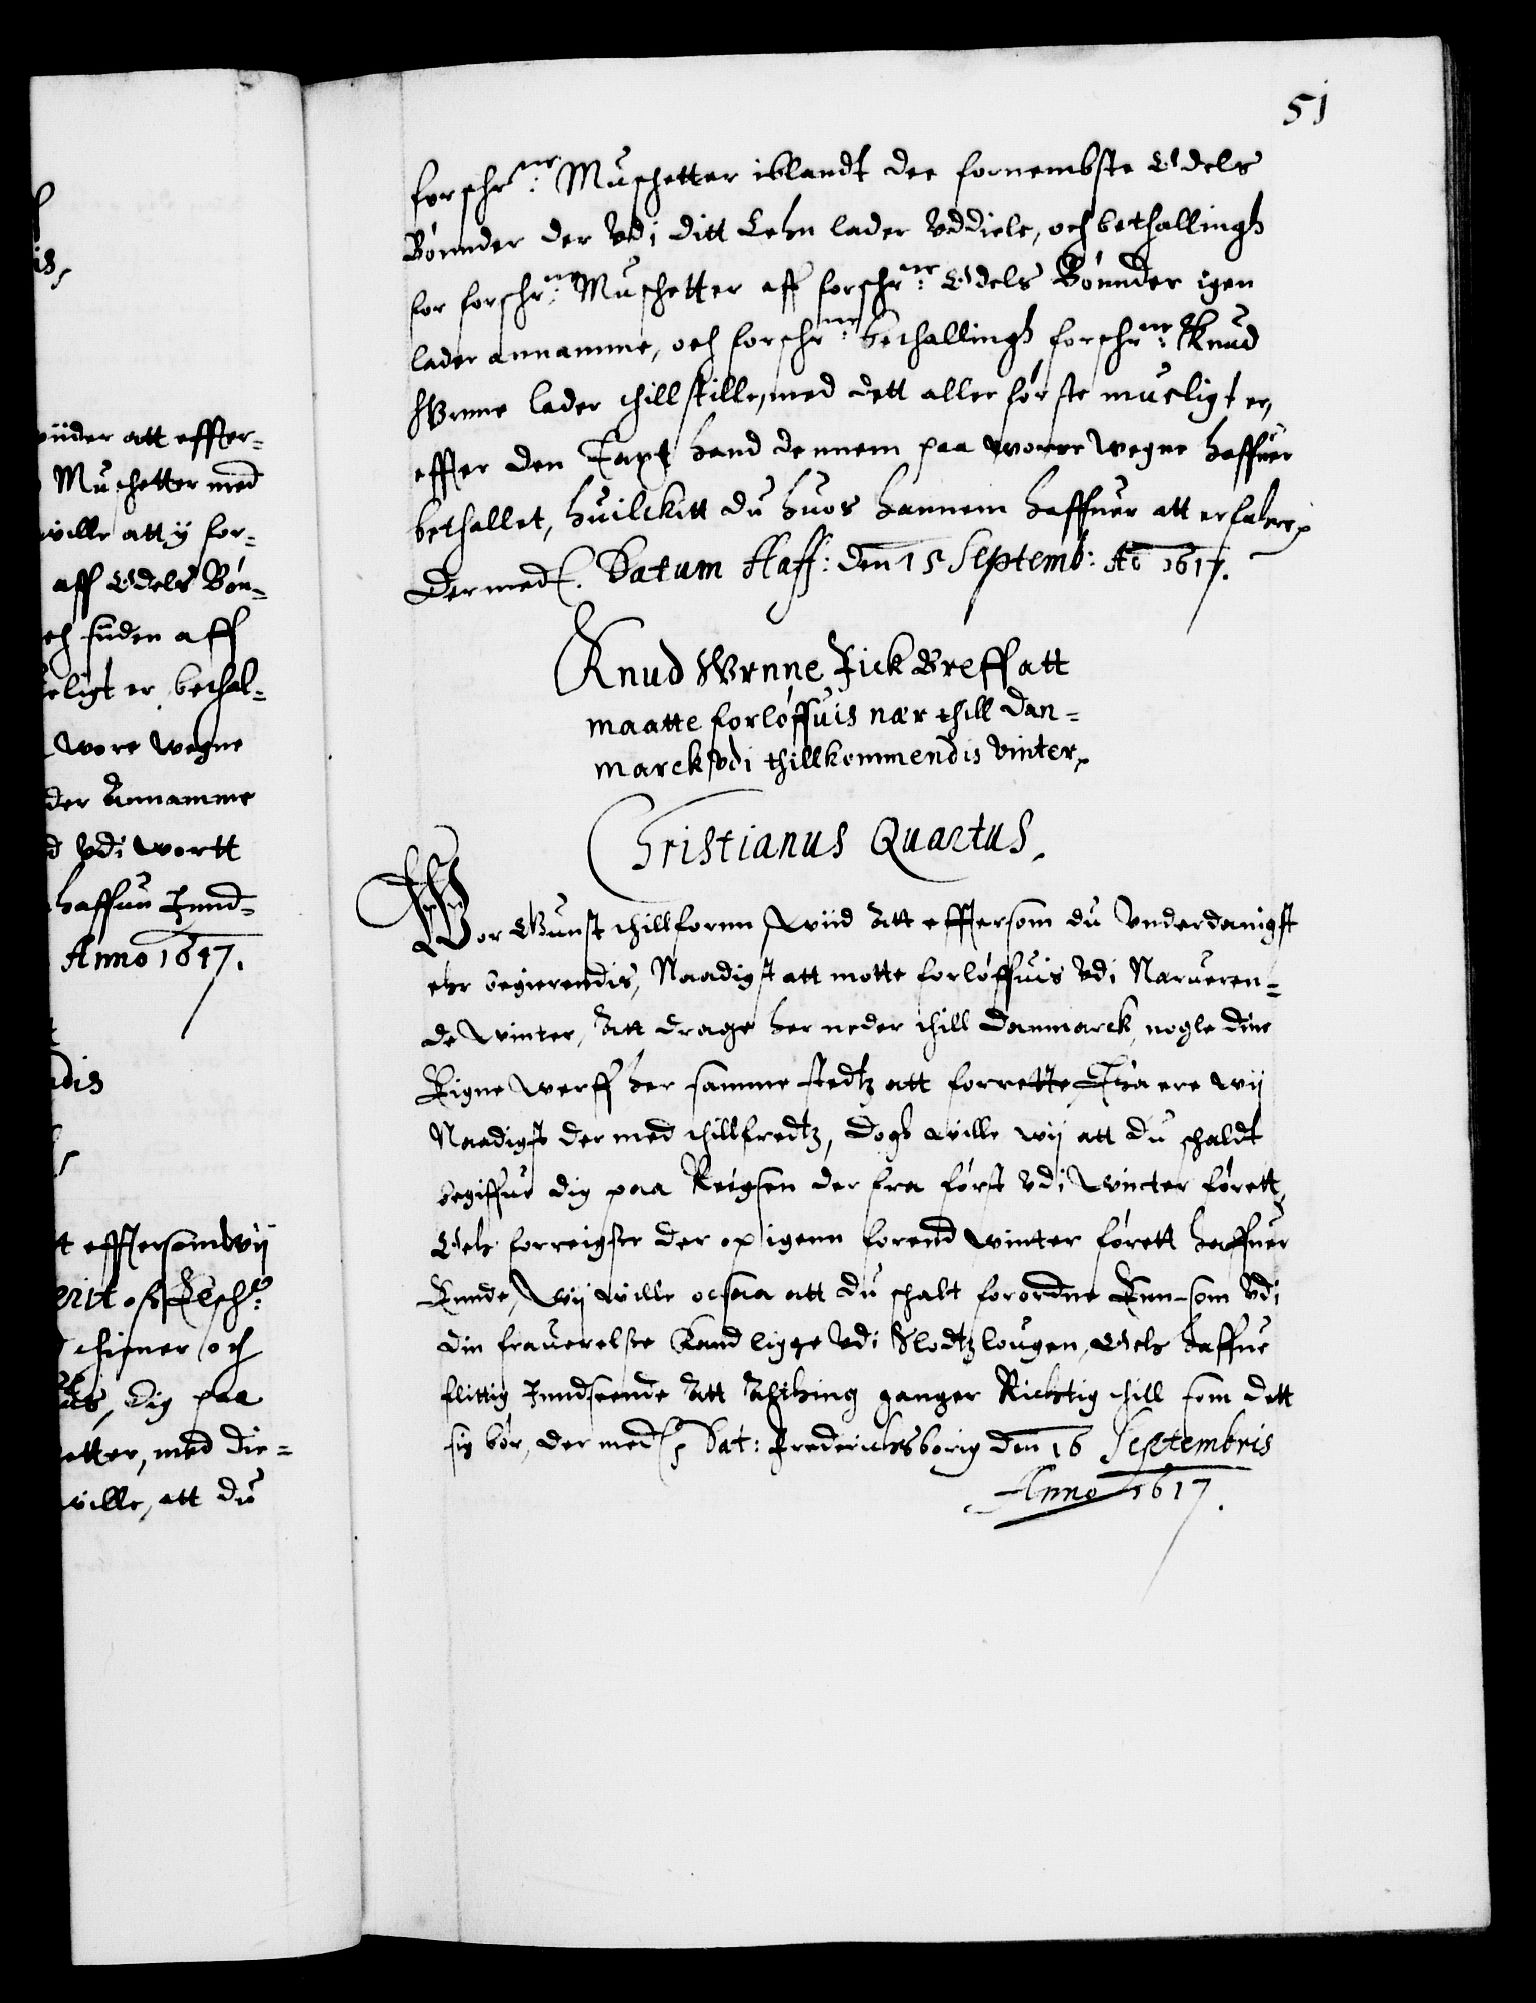 51
forschr:ne Muschetter iblandt dee fornembste Odels
Bønnder der vdi ditt Lehn lader vddiele, och bethallingh
for forschr:ne Muschetter aff forschr:ne Odels Bønnder igen
lader annamme, och forschr:ne bethallingh forschr:ne Knud
Wrnne lader thillstille, med dett aller første mueligt er,
effter den Taxt hand dennem paa worre wegne haffuer
bethallet, huilckitt du huos hannem haffuer att erfahre,
Dermed. Datum Haff: den 15 Septemb: Ao 1617.
Knud Wrnne Fick Breff att
maatte forløffuis nær thill Dan-
marck vdi thillkommendis vinter,
Christianus Quartus,
Wor Gunst thillfornn, Wiid Att effttersom du Vnderdanigst
ehr begierendis, Naadigst att motte forløffuis vdi Narueren-
de winter, Att drage her neder thill Danmarck, nogle dine
Eigne werff her samme stedtz att forrette, Tha ere wij
Naadigst der med thillfredtz, dogh wille wij att du schaldt
begiffue dig paa Reigsen der fra først vdi winter førett,
Och forreigse der op igenn forend winter førett haffuer
Ennde, Wij wille ocsaa att du schalt forordne Enn som vdi
din frauerelse kand ligge vdi Slodtzlougen, Och haffue
flittig Jnndseende Att Allthing ganger Richtig thill som dett
sig bør, der med Dat: Frederichsborig den 16 Septembris
Anno 1617.
wiider att effter-
Muschetter med
wille att y for-
aff Odels Bøn-
och siiden aff
ueligt er bethal-
wore wegne
der Annamme
vdi wortt
haffuer Jnnd-
Anno 1617.
ndis
tt effttersom wij
thiener och
dig paa
etter, med die-
wille, att du